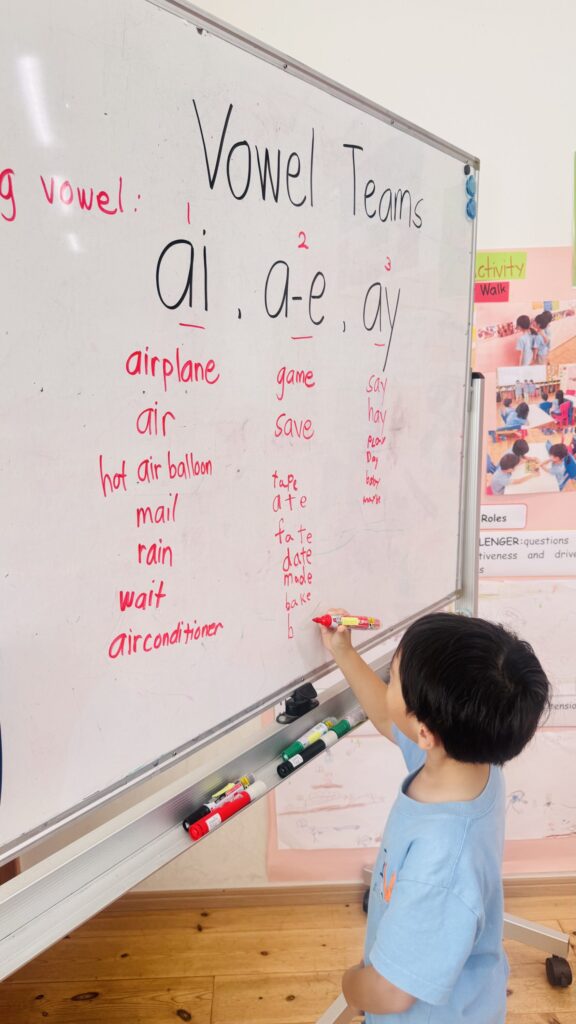 Vowel Teams
g vowel:
1
2
3
ai, a-e, ay
airplane
air
hot air balloon
mail
rain
wait
airconditioner
game
save
tape
ate
fate
date
made
bake
b
say
hay
Day
ctivity
Walk
Roles
LLENGER:questions
tiveness and drive
s
ension